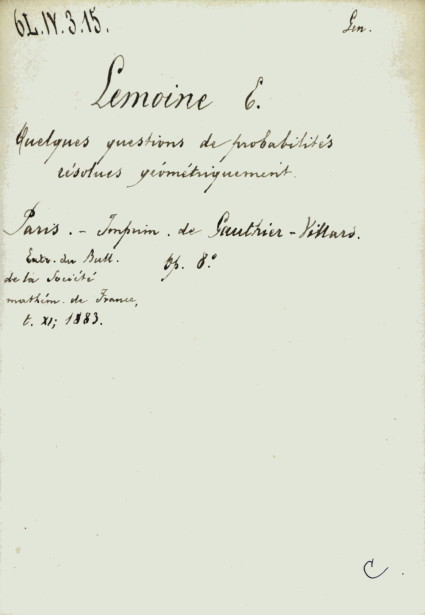 6L.IV.3.15.
Lemoine E.
Quelques questions de probabilités
résolues géométriquement.
Paris. - Imprim. de Gauthier-Villars.
Extr. du Bull. 8.°
de la Société
mathém. de France,
t. XI; 1883.
C